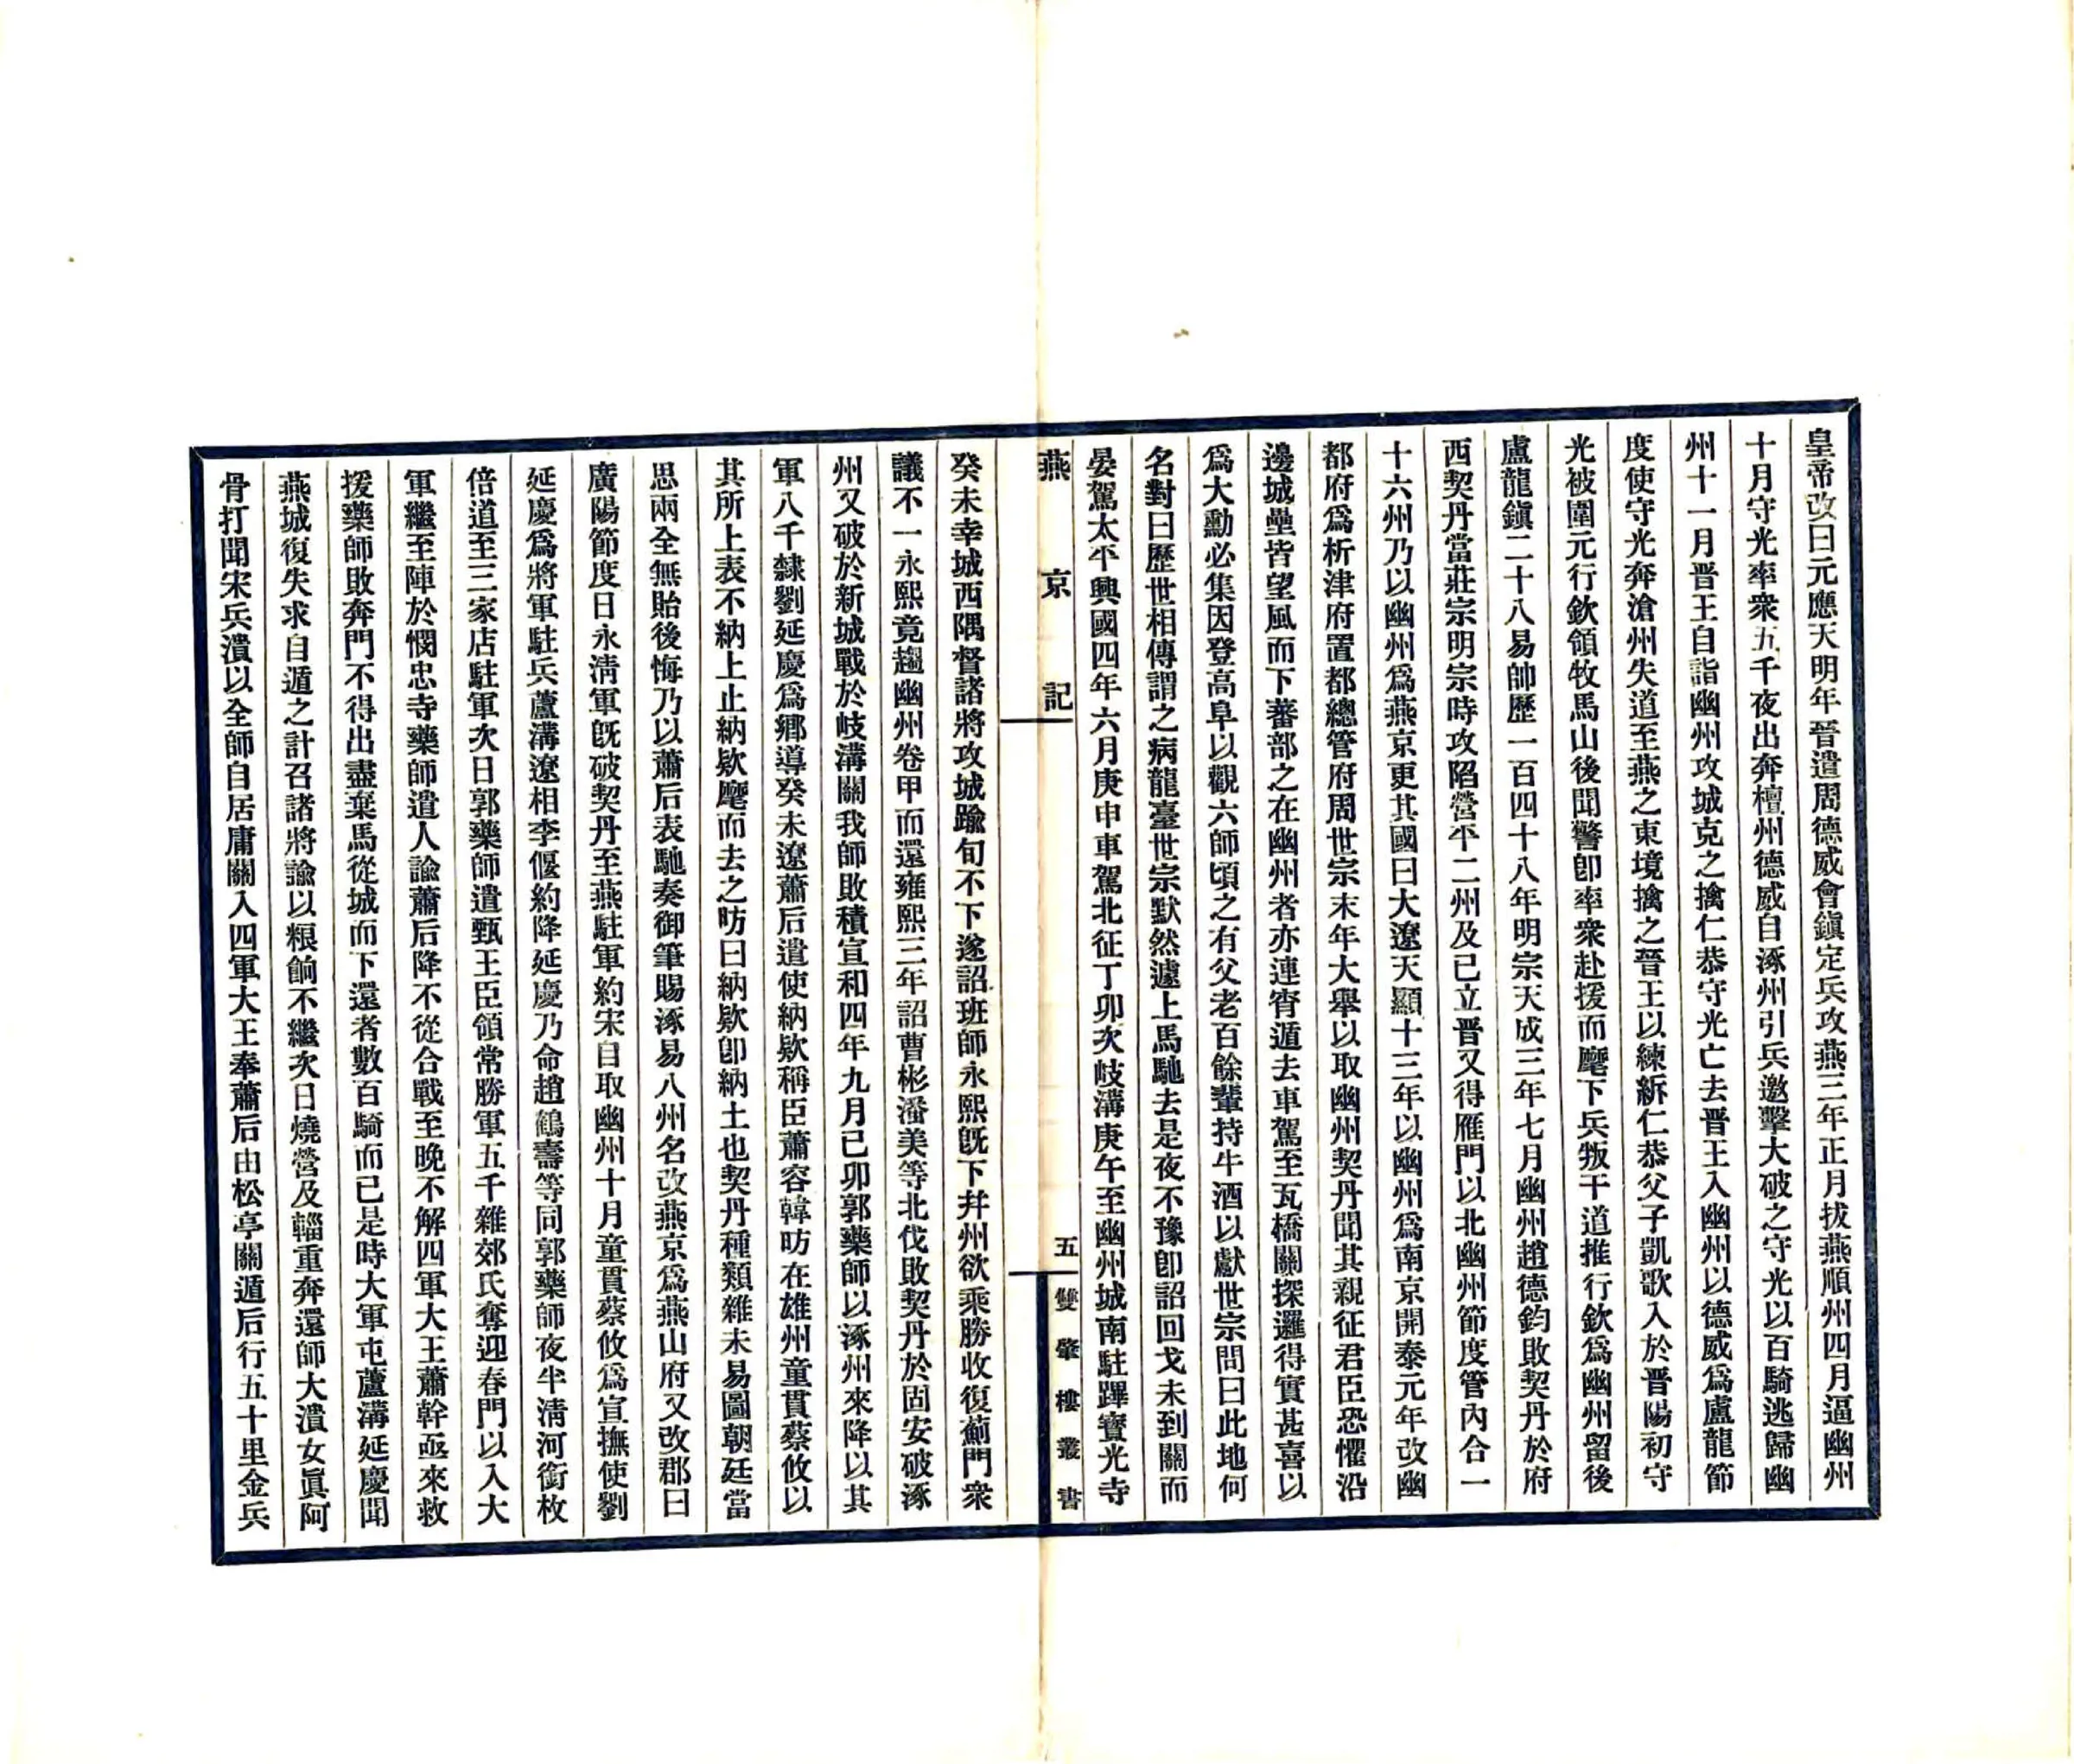 皇帝改曰元應天明年晉遣周德威會鎭定兵攻燕三年正月拔燕順州四月逼幽州
十月守光率衆五千夜出奔檀州德威自涿州引兵邀擊大破之守光以百騎逃歸幽
州十一月晉王自詣幽州攻城克之擒仁恭守光亡去晉王入幽州以德威爲盧龍節
度使守光奔滄州失道至燕之東境擒之晉王以練䋲仁恭父子凱歌入於晉陽初守
光被圍元行欽領牧馬山後聞警卽率衆赴援而麾下兵叛于道推行欽爲幽州留後
盧龍鎭二十八易帥歷一百四十八年明宗天成三年七月幽州趙德鈞敗契丹於府
西契丹當莊宗明宗時攻陷營平二州及已立晉又得雁門以北幽州節度管內合一
十六州乃以幽州爲燕京更其國曰大遼天顯十三年以幽州爲南京開泰元年改幽
都府爲析津府置都總管府周世宗末年大舉以取幽州契丹聞其親征君臣恐懼沿
邊城壘皆望風而下蕃部之在幽州者亦連宵遁去車駕至瓦橋關探邏得實甚喜以
爲大勳必集因登高阜以觀六師頃之有父老百餘輩持牛酒以獻世宗問曰此地何
名對曰歷世相傳謂之病龍臺世宗默然遽上馬馳去是夜不豫卽詔回戈未到關而
晏駕太平興國四年六月庚申車駕北征丁卯次岐溝庚午至幽州城南駐蹕寶光寺
燕京記
五
雙肇樓叢書
癸未幸城西隅督諸將攻城踰旬不下遂詔班師永熙旣下幷州欲乘勝收復薊門衆
議不一永熙竟趨幽州卷甲而還雍熙三年詔曹彬潘美等北伐敗契丹於固安破涿
州又破於新城戰於岐溝關我師敗積宣和四年九月已卯郭藥師以涿州來降以其
軍八千隸劉延慶爲鄉導癸未遼蕭后遣使納欵稱臣蕭容韓昉在雄州童貫蔡攸以
其所上表不納上止納欵麾而去之昉曰納欵卽納土也契丹種類雜未易圖朝廷當
思兩全無貽後悔乃以蕭后表馳奏御筆賜涿易八州名改燕京爲燕山府又改郡曰
廣陽節度曰永淸軍旣破契丹至燕駐軍約宋自取幽州十月童貫蔡攸爲宣撫使劉
延慶爲將軍駐兵蘆溝遼相李偃約降延慶乃命趙鶴壽等同郭藥師夜半淸河銜枚
倍道至三家店駐軍次日郭藥師遣甄王臣領常勝軍五千雜郊氏奪迎春門以入大
軍繼至陣於憫忠寺藥師遣人諭蕭后降不從合戰至晚不解四軍大王蕭幹亟來救
援藥師敗奔門不得出盡棄馬從城而下還者數百騎而已是時大軍屯蘆溝延慶聞
燕城復失求自遁之計召諸將諭以粮餉不繼次日燒營及輜重奔還師大潰女眞阿
骨打聞宋兵潰以全師自居庸關入四軍大王奉蕭后由松亭關遁后行五十里金兵